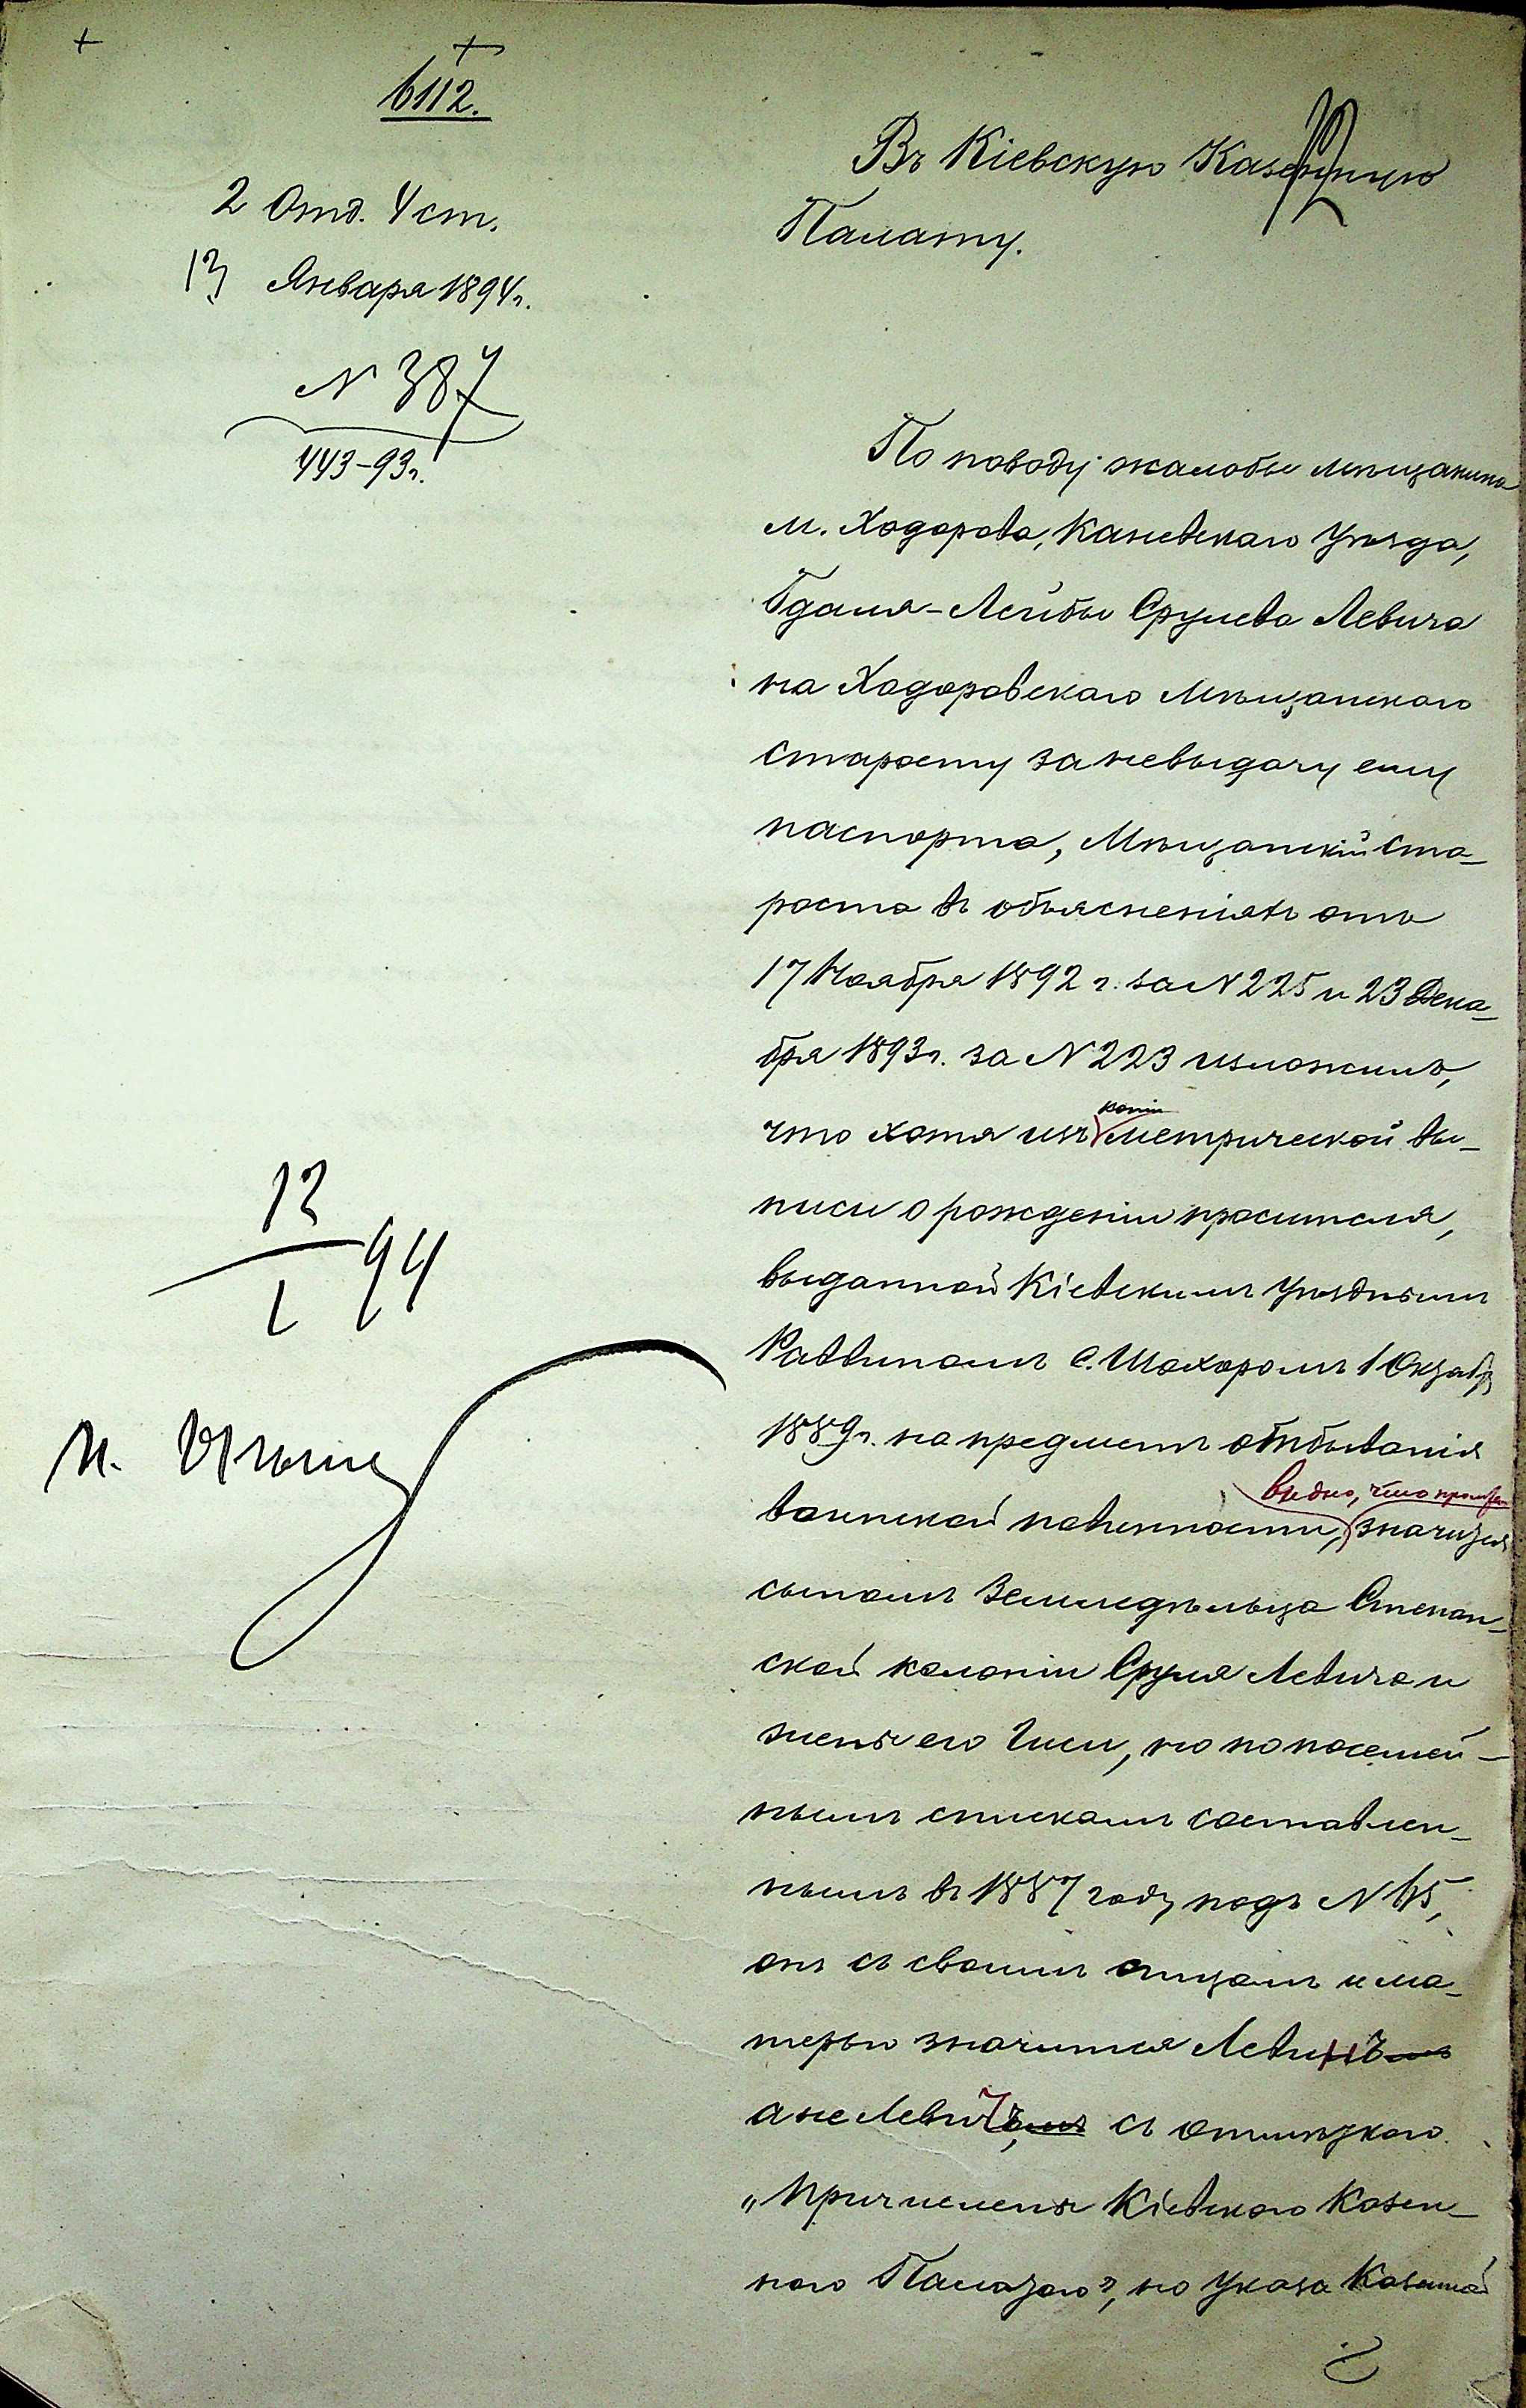 6112.
2 Отд. 4 ст.
13 Января 1894 г.
N 387
443-93 г.
13
1 94
Въ Кіевскую Казенную
Палату.
По поводу жалобы мѣщанина
м. Ходорова, Каневскаго уѣзда,
Гдаля-Лейбы Срулева Левича
на Ходоровскаго Мѣщанскаго
старосту за невыдачу ему
паспорта, Мѣщанскій ста-
роста въ объясненіяхъ отъ
17 Ноября 1892 г. за N 225 и 23 Дека-
бря 1893 г. за N 223 изложилъ,
копіи
что хотя изъ метрической вы-
писи о рожденіи просителя,
выданной Кіевскимъ уѣзднымъ
Раввиномъ С. Шахоромъ 1 Октябр
1889 г. на предметъ отбыванія
видно, что
воинской повинности, значится
сыномъ Земледѣльца Степан-
ской колоніи Сруля Левича и
жены его Гиси, но по посемей-
нымъ спискамъ составлен-
нымъ въ 1887 году подъ N 65,
онъ съ своимъ отцомъ и ма-
терью значится Левинъ
а не Левичъ, съ отмѣткою
„Причислены Кіевскою Казен-
ною Палатою", но указа Казенной